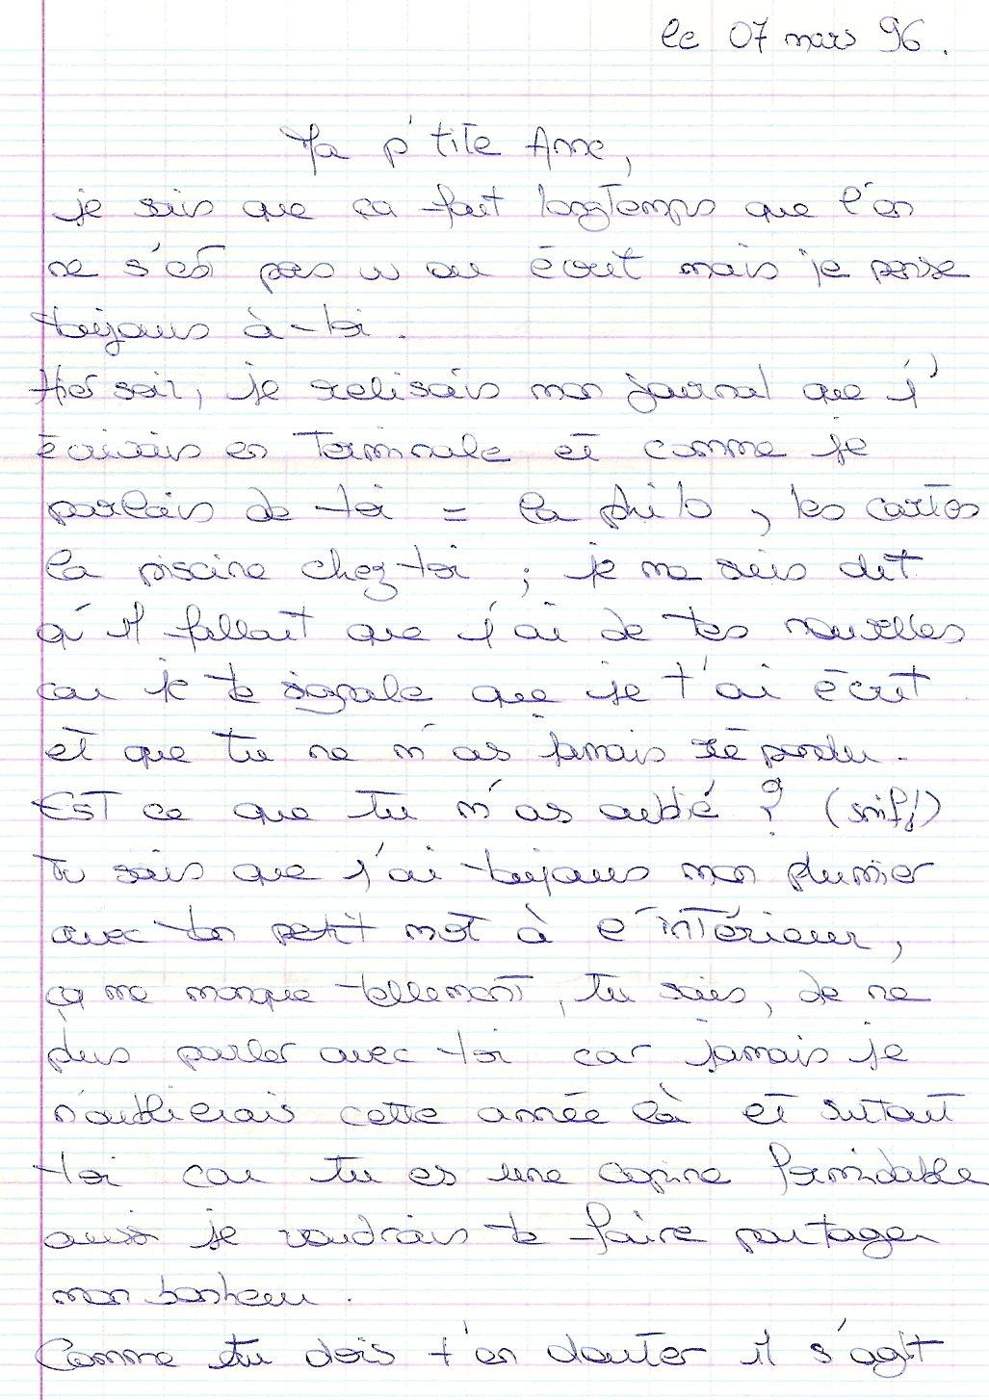 le 07 mars 96.
Ma p'tite Anne,
je sais que ça fait longtemps que l'on
ne s'est pas vu ou écrit mais je pense
toujours à-toi.
Hier soir, je relisais mon journal que j'
écrivais en Terminale et comme je
parlais de toi = la philo, les cartes
la piscine chez toi ; je me suis dit
qu'il fallait que j'ai de tes nouvelles
car je te signale que je t'ai écrit
et que tu ne m'as jamais répondu.
Est ce que tu m'as oublié ? (snif!)
Tu sais que j'ai toujours mon plumier
avec ton petit mot à l'intérieur,
ça me manque tellement, tu sais, de ne
plus parler avec toi car jamais je
n'oublierais cette année là et surtout
toi car tu es une copine formidable
aussi je voudrais te faire partager
mon bonheur.
Comme tu dois t'en douter il s'agit